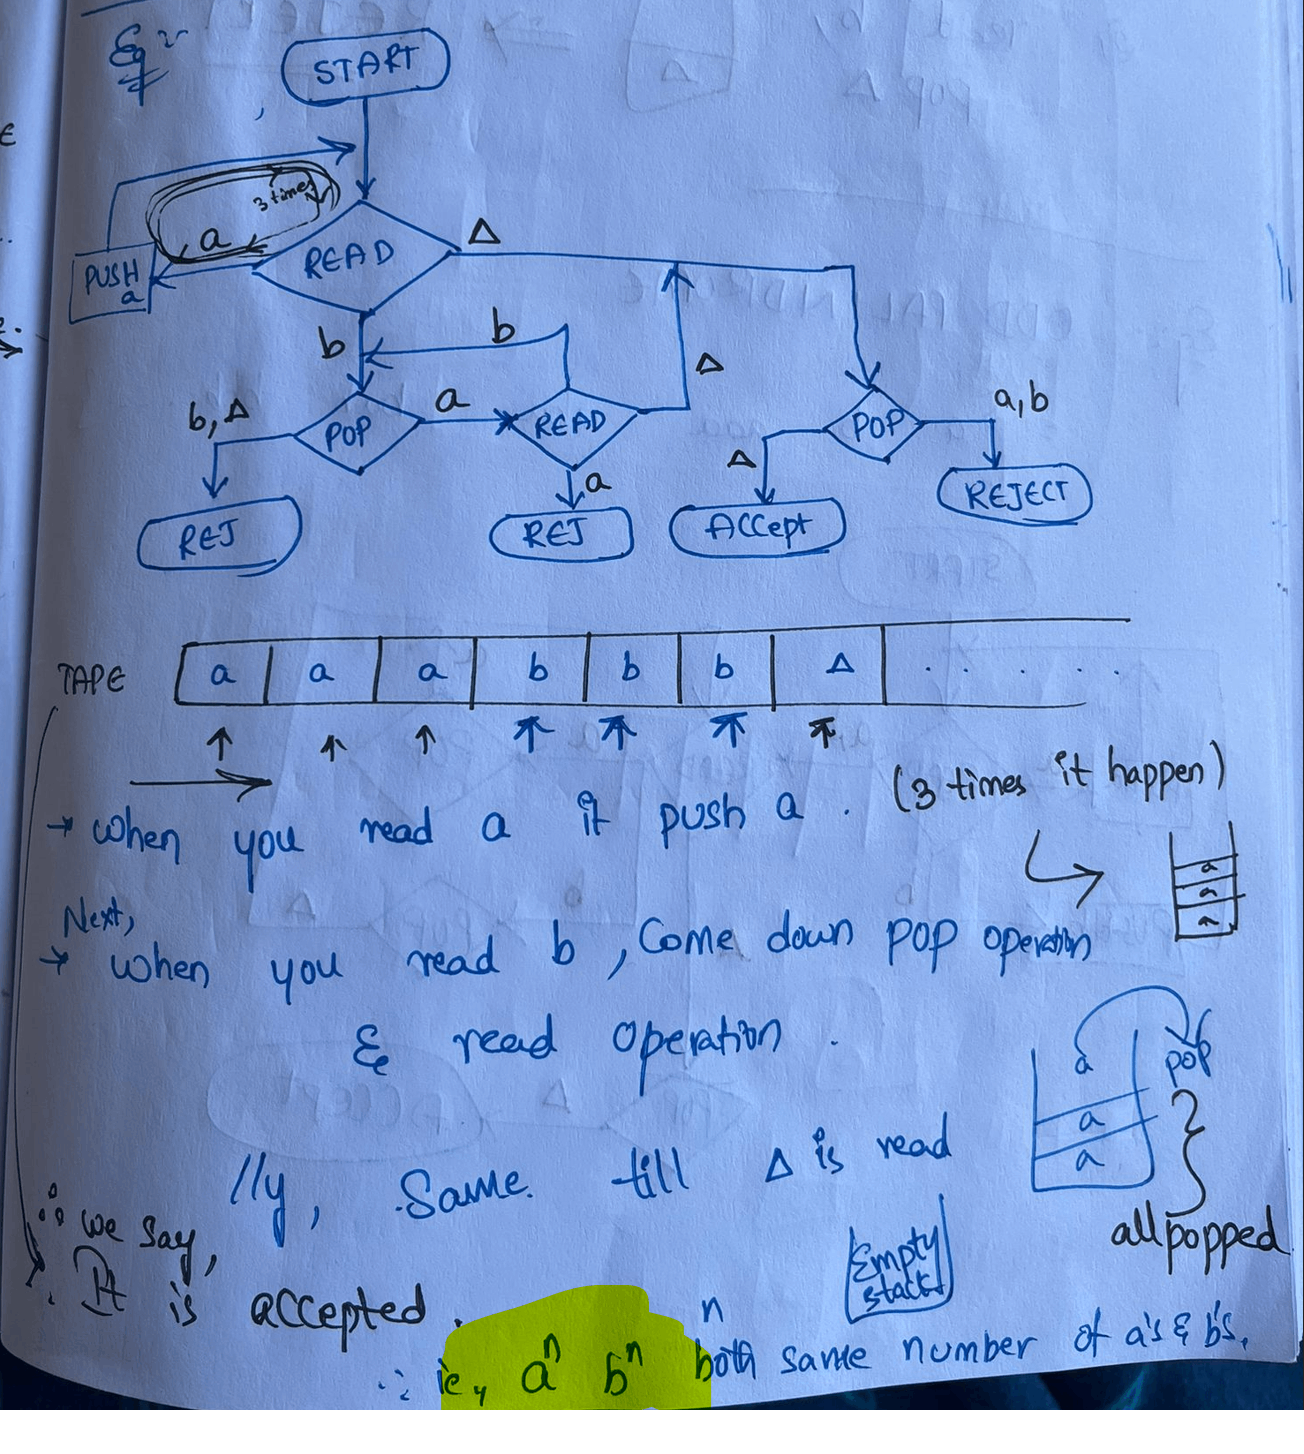 Eg :-
START
3 times
a
READ
Δ
PUSH
a
b
b
Δ
b, Δ
POP
a
READ
POP
a, b
a
Δ
REJ
REJ
ACCept
REJECT
TAPE a a a b b b Δ . . . . .
(3 times it happen)
→ when you read a it push a .
a
a
a
Next,
→ when you read b , Come down pop operation
& read operation .
a pop
a
a
//y, Same till Δ is read
all popped
∴ we say,
It is accepted .
Empty
stack
n
∴ ie, aⁿ bⁿ both same number of a's & b's.